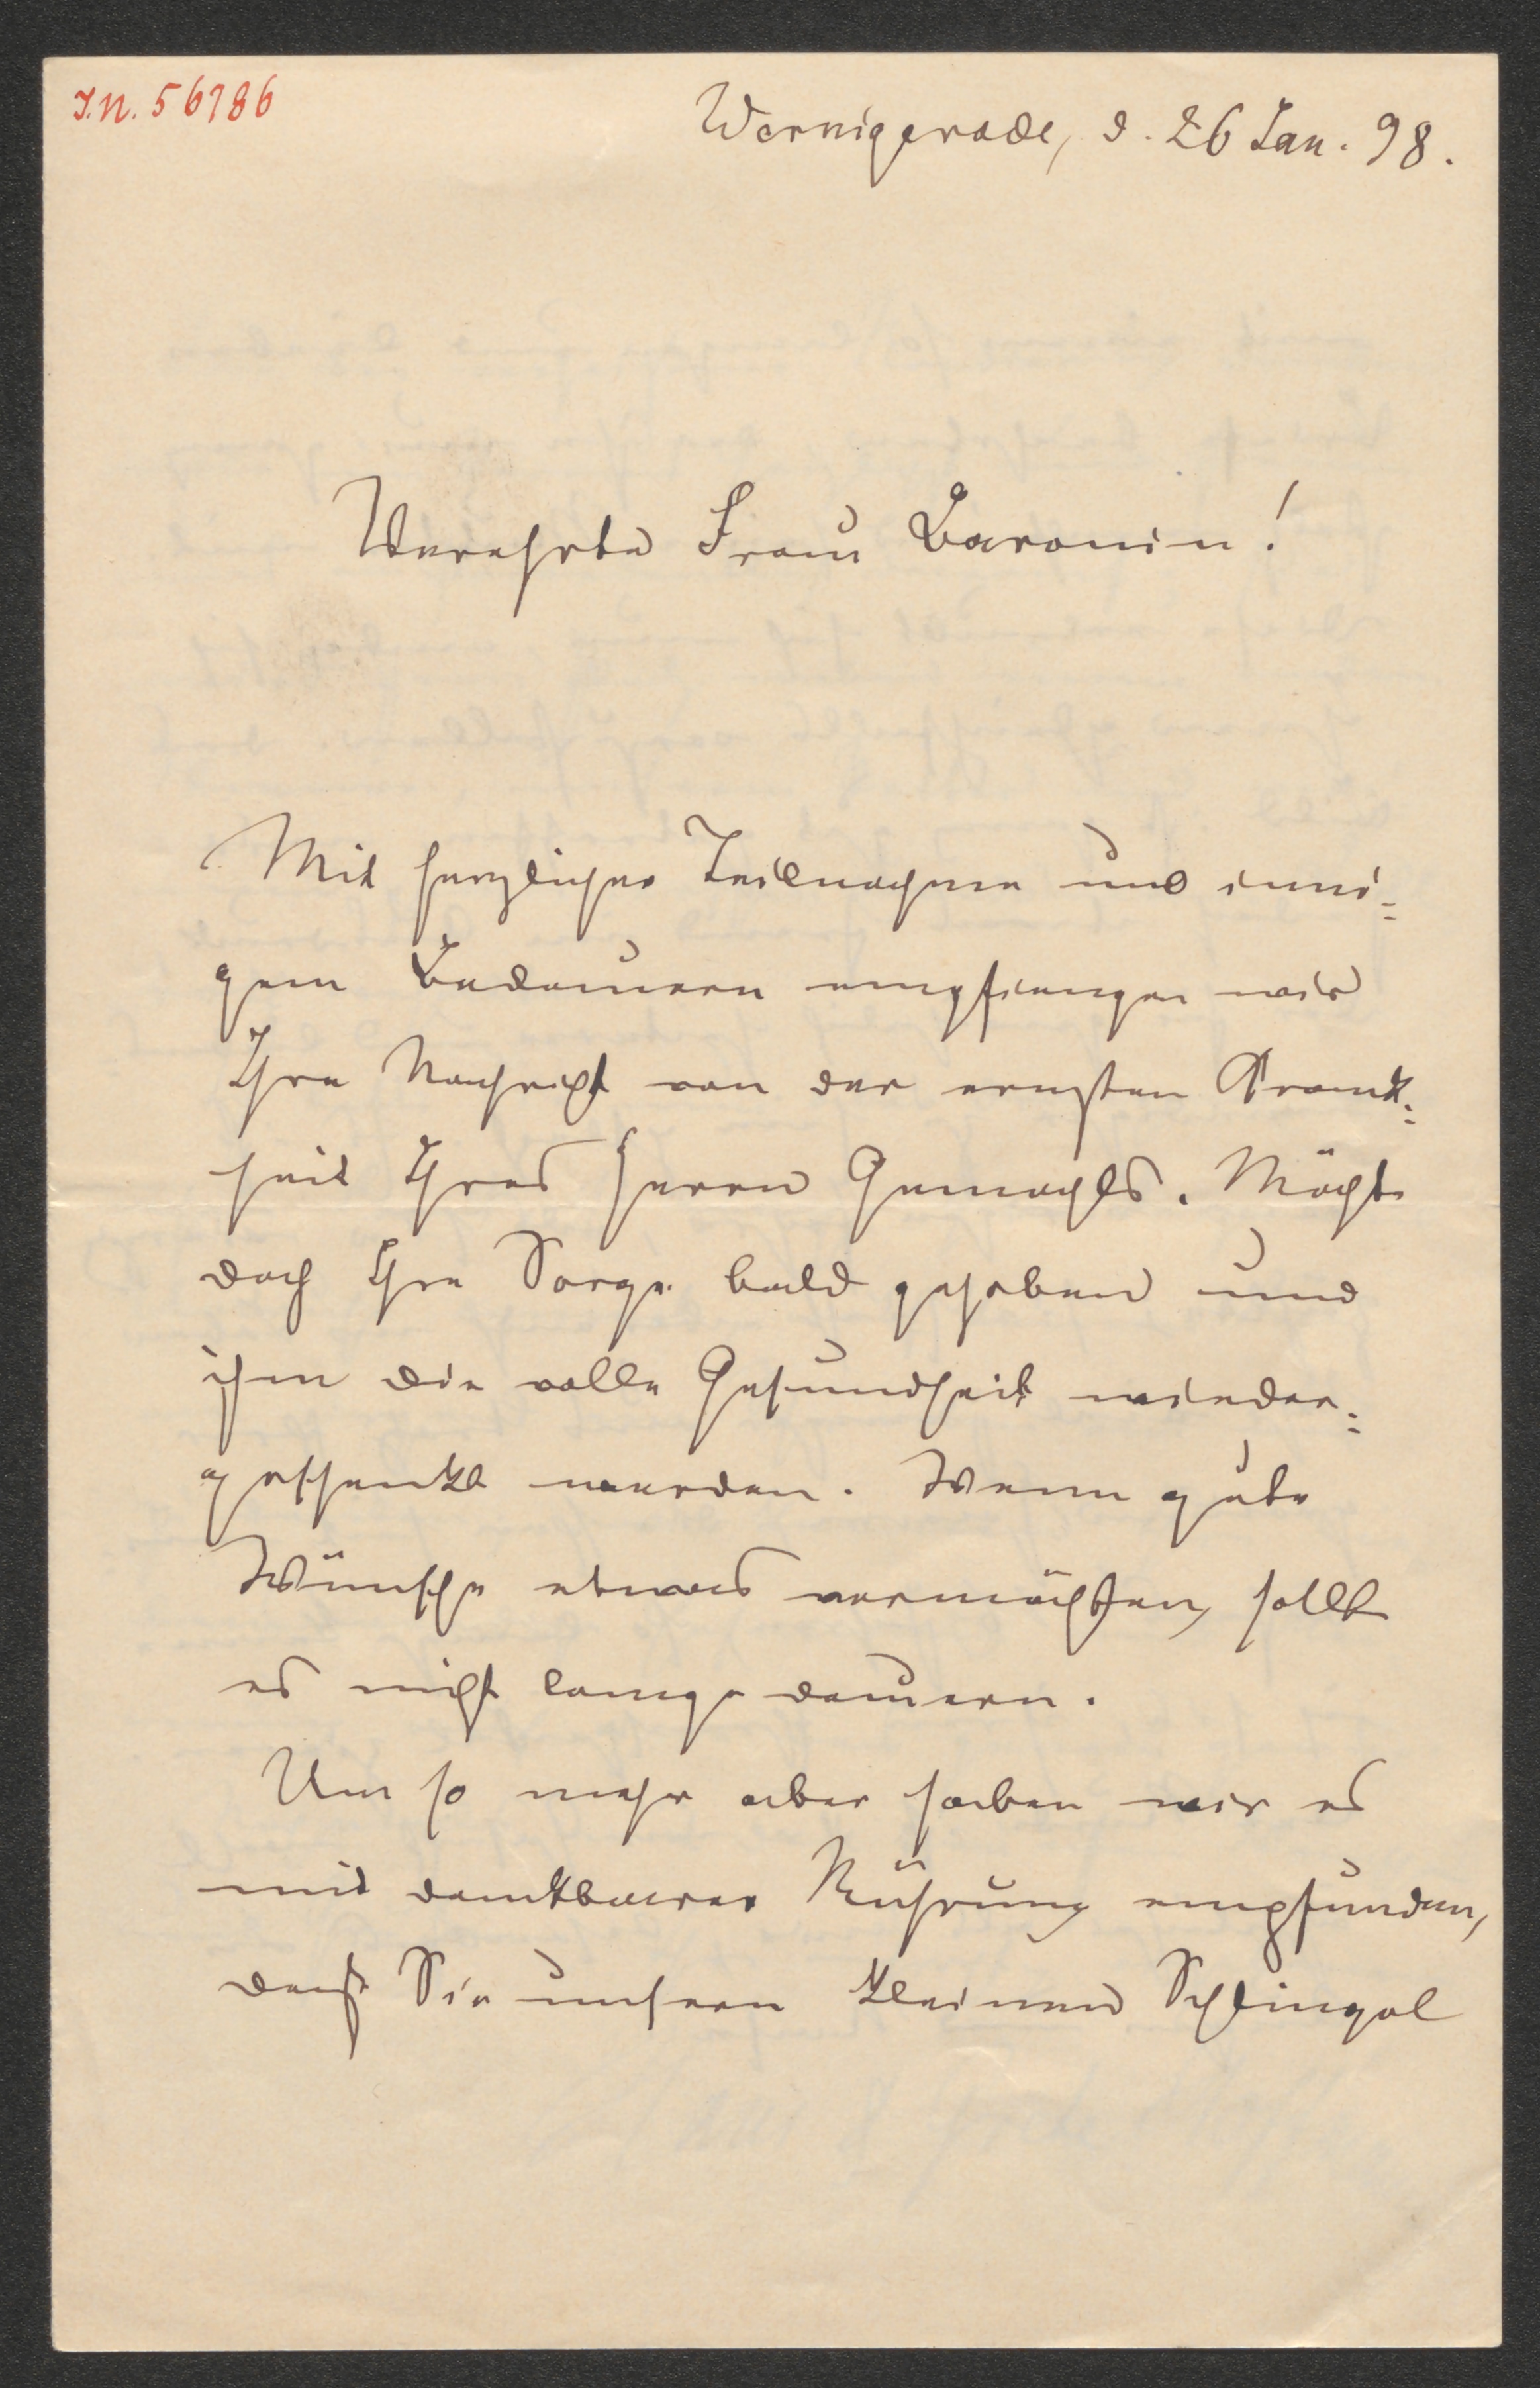 I.N. 56786
Wernigerode, d. 26 Jan. 98.
Verehrte Frau Baronin!
Mit herzlicher Teilnahme und inni-
gem Bedauern empfiengen wir
Ihre Nachricht von der ernsten Krank-
heit Ihres Herrn Gemahls. Möchte
doch Ihre Sorge bald gehoben und
ihm die volle Gesundheit wieder-
geschenkt werden. Wenn gute
Wünsche etwas vermöchten, sollte
es nicht lange dauern.
Um so mehr aber haben wir es
mit dankbarer Rührung empfunden,
daß Sie unsern kleinen Schlingel